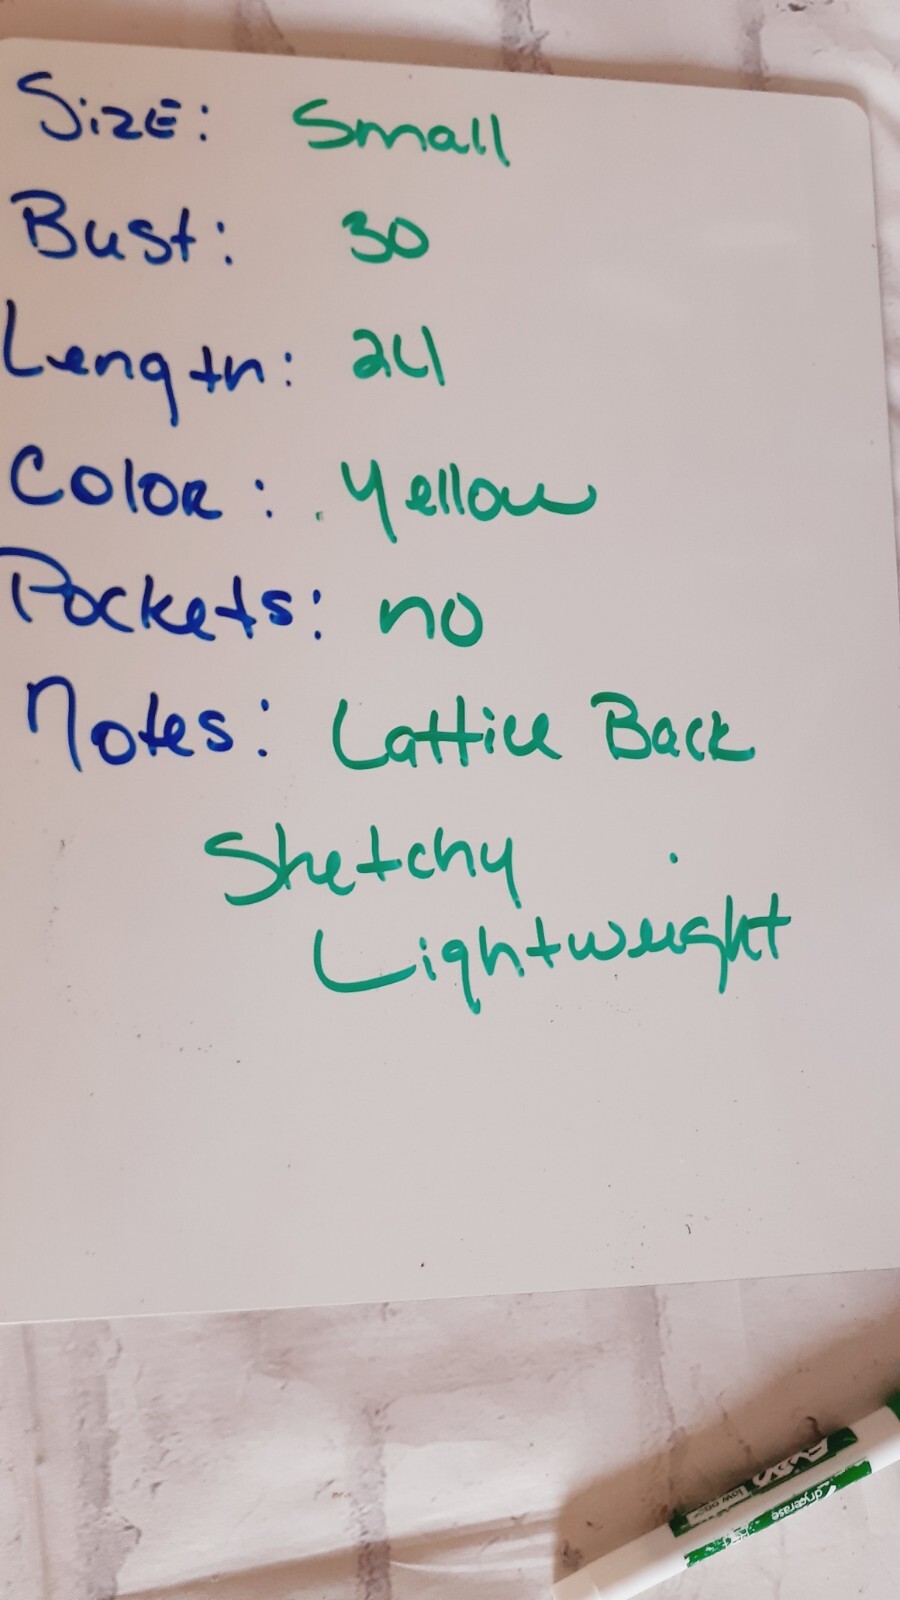 SizE: Small
Bust: 30
Length: 24
Color: Yellow
Pockets: no
Notes: Lattice Back
Sketchy
Lightweight
EXPO
low odor
dry erase